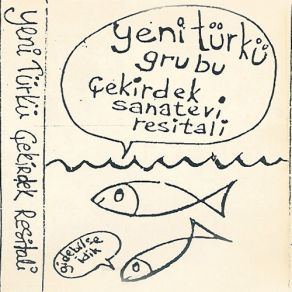 Yeni Türkü Çekirdek Resitali
yeni türkü
grubu
Çekirdek
sanatevi
resitali
gidebilse
idik